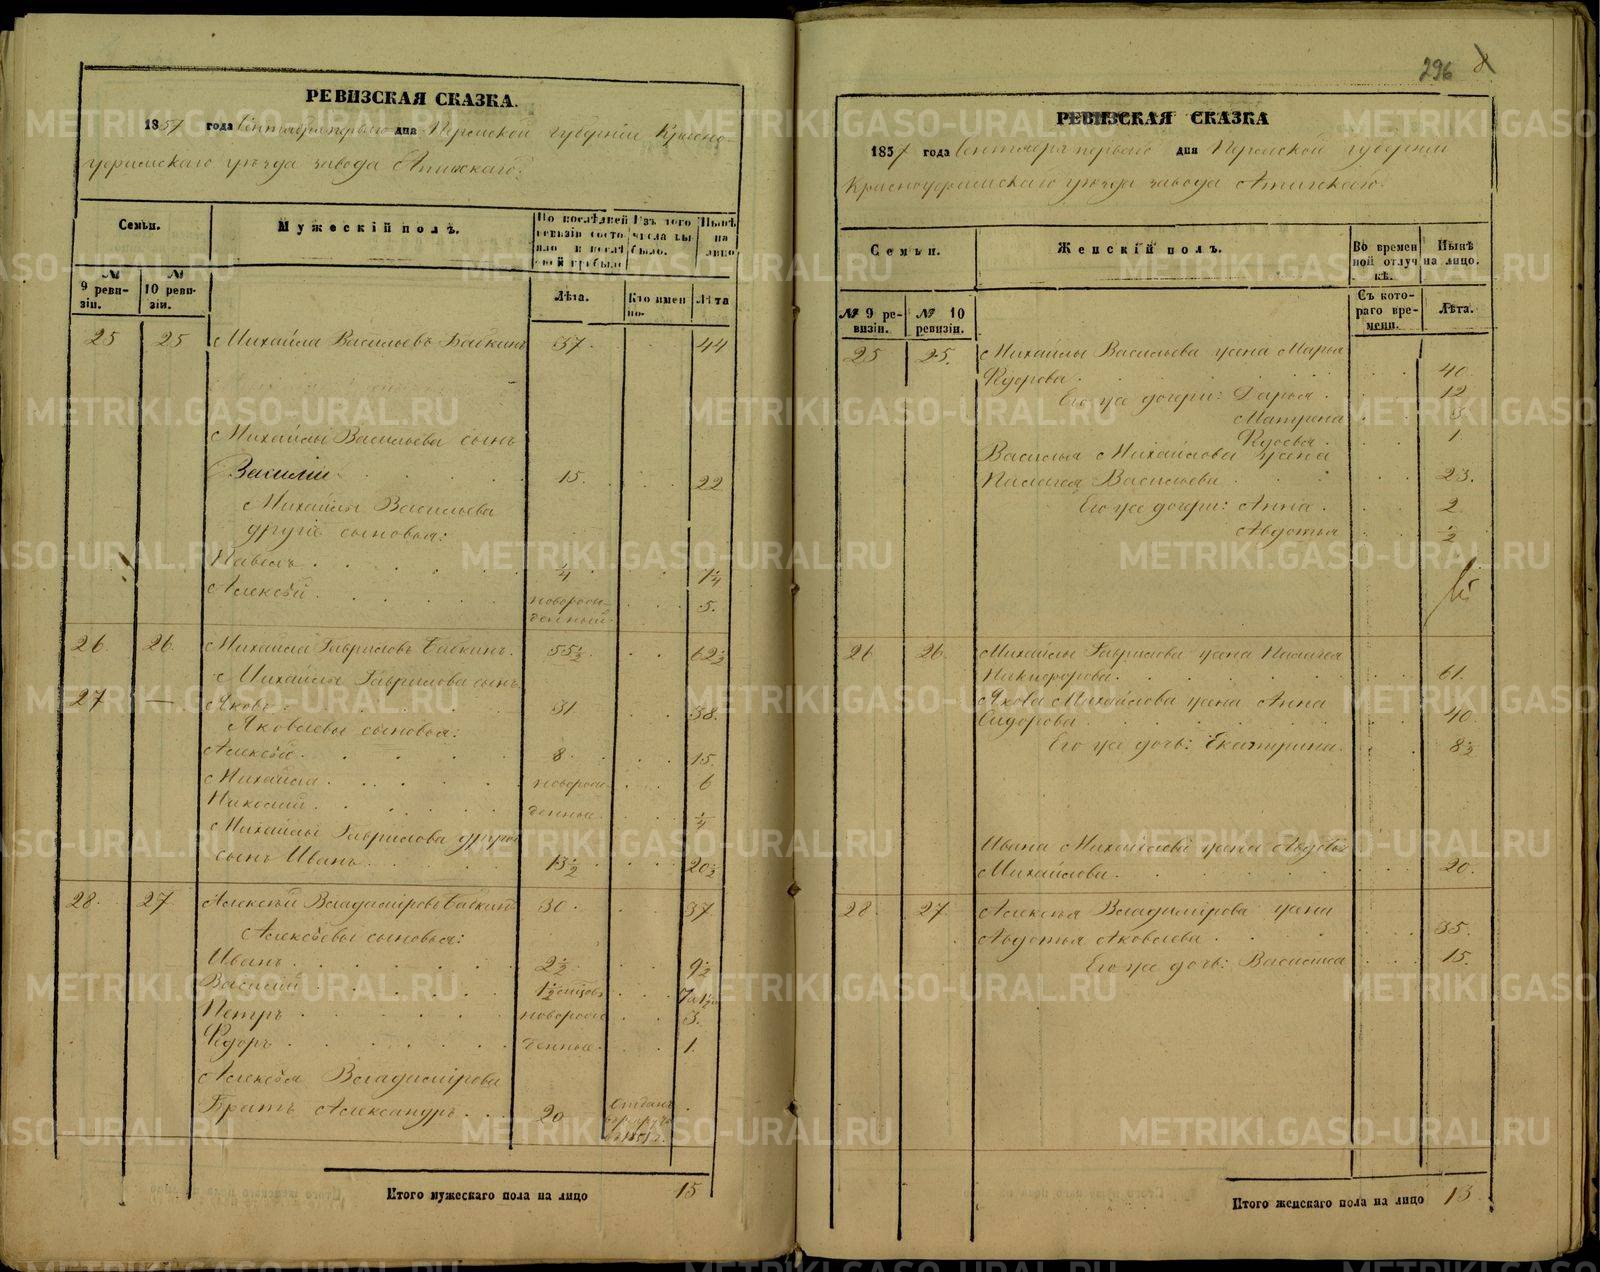 РЕВИЗСКАЯ СКАЗКА.
1857 года Сентября первого дня Пермской губернии Красно-
уфимскаго уѣзда завода Атигскаго.
Семьи.
Мужескій полъ.
По послѣдней ревизіи состояло и послѣ оной прибыло
Изъ того числа выбыло.
Нынѣ на лицо
№ 9 ревизіи.
№ 10 ревизіи.
Лѣта.
Кто именно.
Лѣта
25 25 Михайла Васильевъ Бабкинъ 37 44
Михайлы Васильева сынъ
Василій 15. 22
Михайлы Васильева
другіе сыновья:
Павелъ
Алексѣй новорож-
денный. 5.
26. 26. Михайла Гавриловъ Бабкинъ. 55½ 62½
Михайлы Гаврилова сынъ
27 — Яковъ 31 38.
Яковлевы сыновья:
Алексѣй 8 15.
Михайла новорож 6
Николай денные ¼
Михайлы Гаврилова другой
сынъ Иванъ 13½ 20½
28. 27 Алексѣй Владиміровъ Бабкинъ 30 37
Алексѣевы сыновья:
Иванъ 2½ 9½
Василій
Петръ новорож 3.
Федоръ денные 1.
Алексѣя Владимірова
Братъ Александръ 20 Отданъ
Итого мужескаго пола на лицо 15
296
8
РЕВИЗСКАЯ СКАЗКА
1857 года Сентября первого дня Пермской губерніи
Красноуфимскаго уѣзда завода Атигскаго.
Семьи.
Женскій полъ.
Во временной отлучкѣ.
Нынѣ на лицо.
№ 9 ревизіи.
№ 10 ревизіи.
Съ котораго времени.
Лѣта.
25 25. Михайлы Васильева жена Марья
Федорова 40
Его же дочери: Дарья 12
Матрена
1.
Василья Михайлова жена
Палагея Васильева 23.
Его же дочери: Анна 2
Авдотья ½
26 26. Михайлы Гаврилова жена Палагея
Никифорова 61.
Якова Михайлова жена Анна
Сидорова 40
Его же дочь: Екатерина 8½
Ивана Михайлова жена
Михайлова 20.
28. 27 Алексѣя Владимірова жена
Авдотья Яковлева 35.
Его же дочь: Василиса 15.
Итого женскаго пола на лицо 13
METRIKI.GASO-URAL.RU